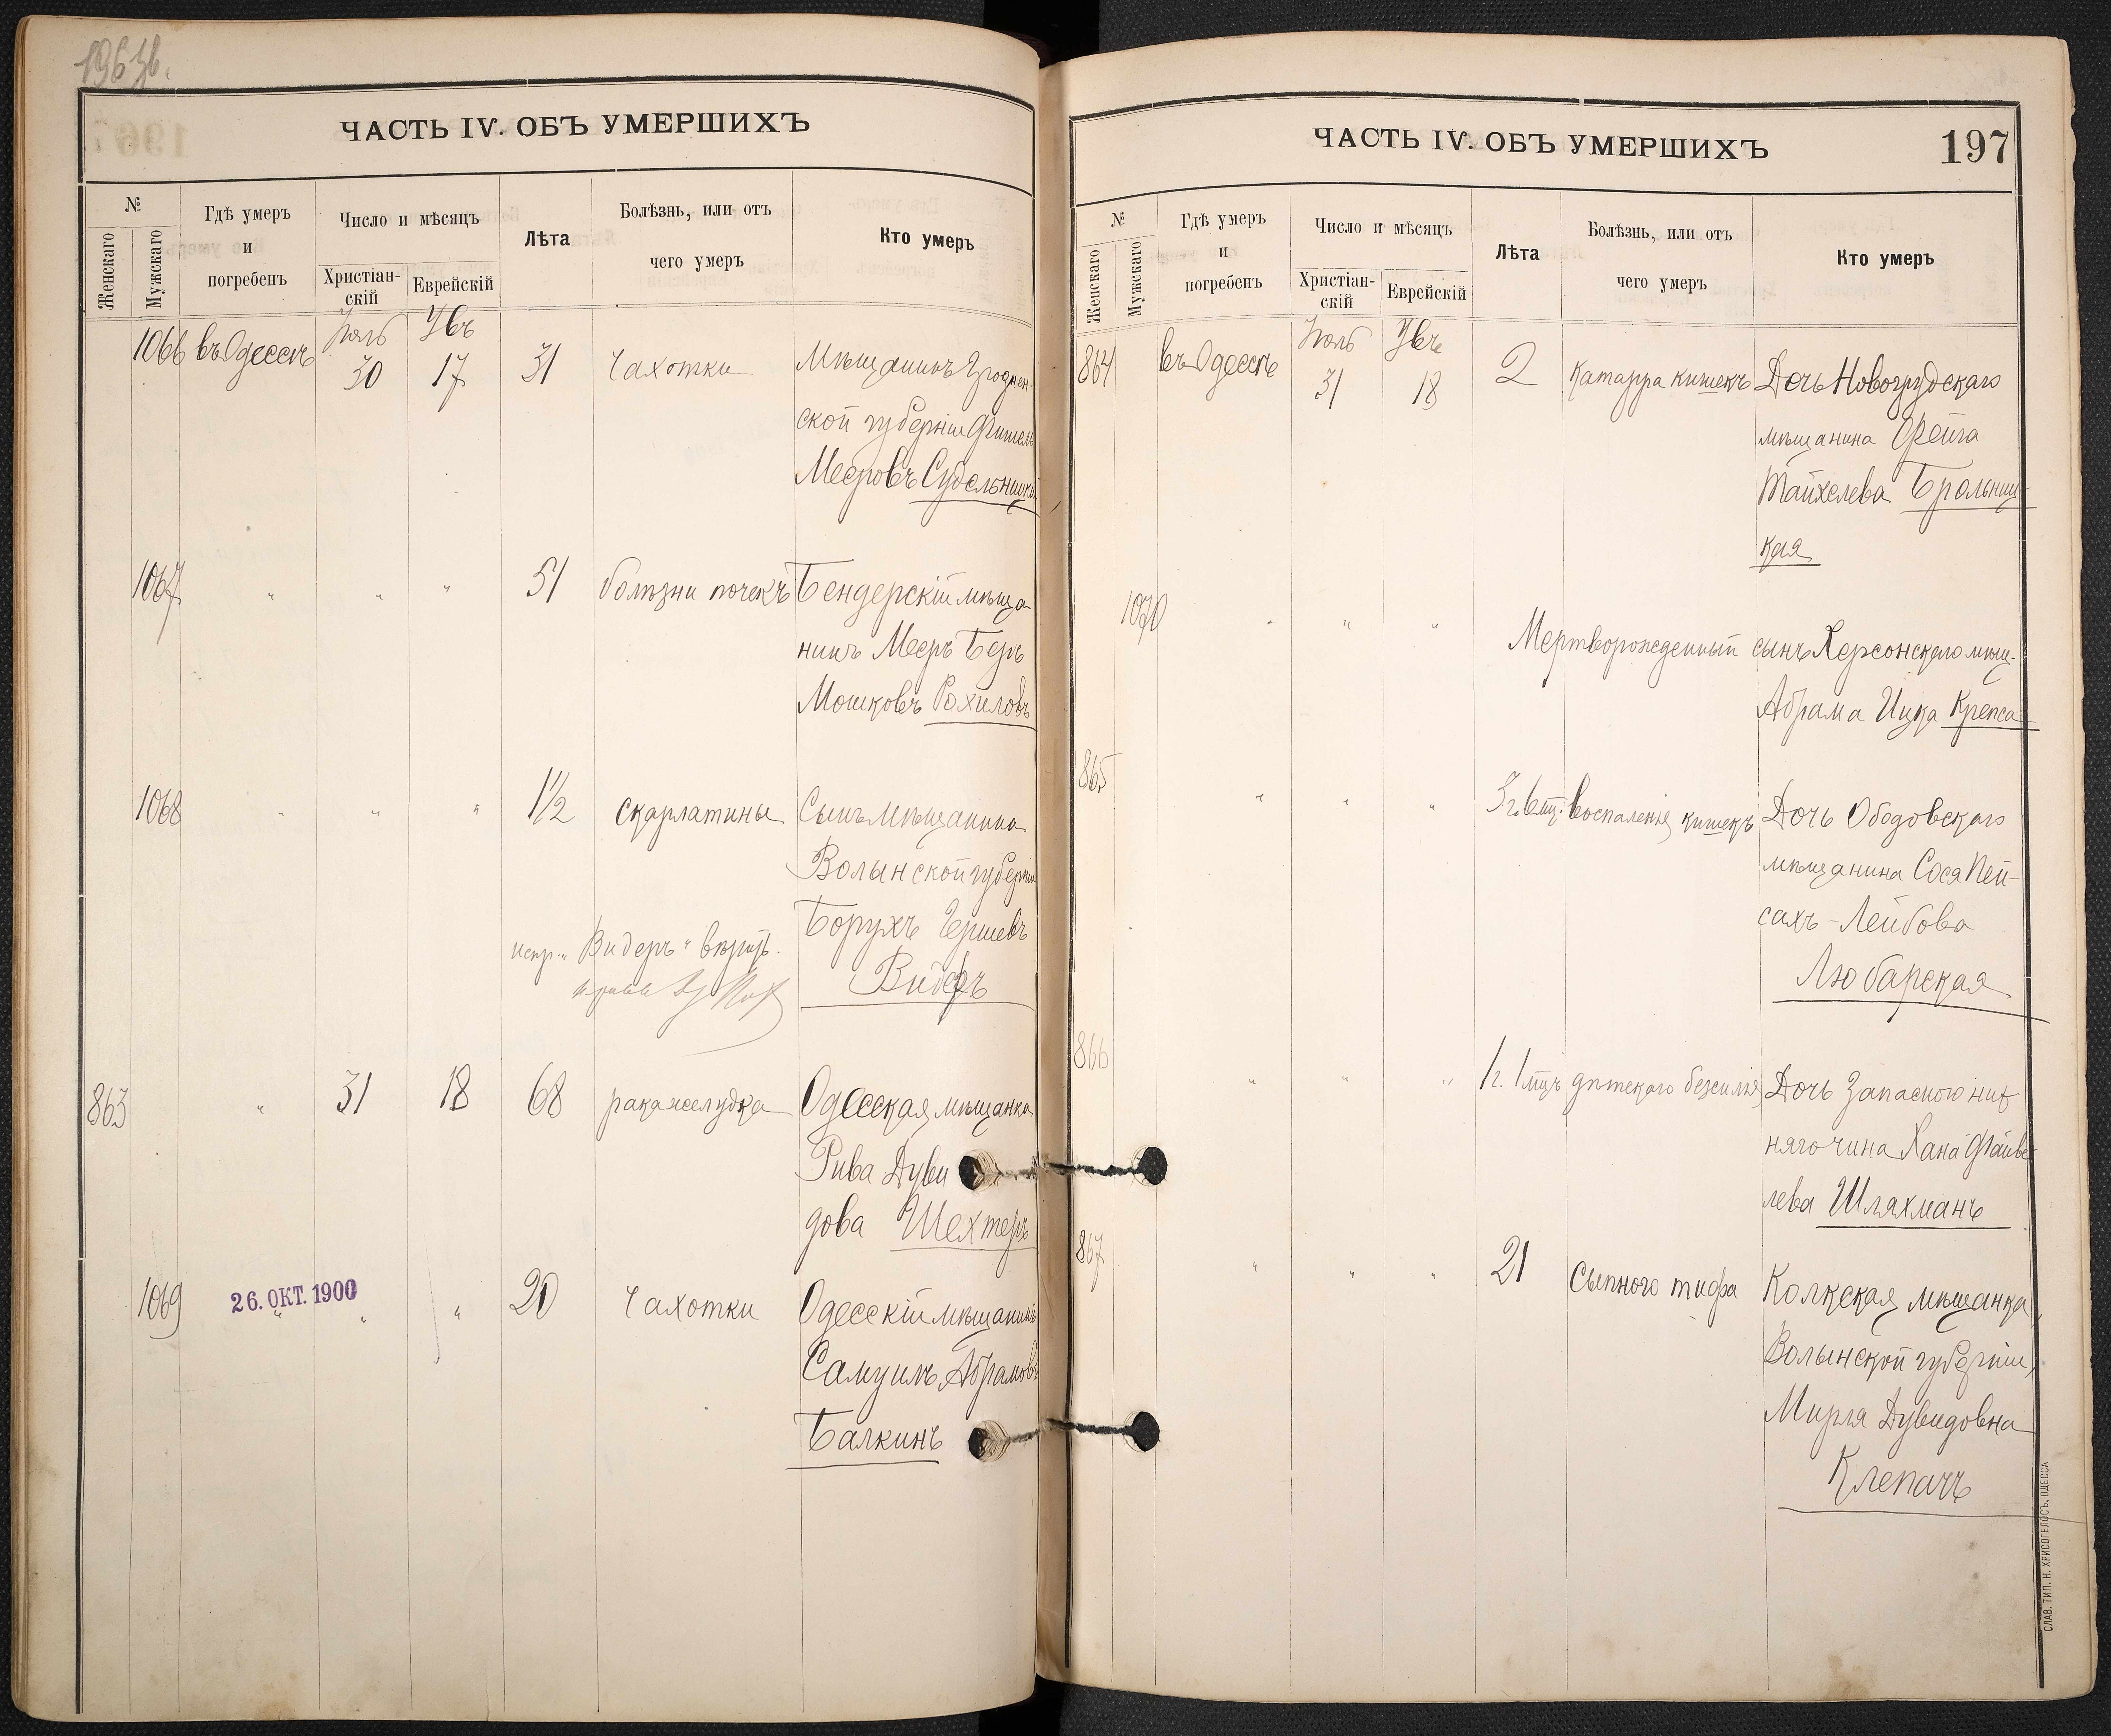 196 зв.
ЧАСТЬ IV. ОБЪ УМЕРШИХЪ
№
Женскаго
Мужскаго
Гдѣ умеръ
и
погребенъ
Число и мѣсяцъ
Христіан-
скій
Еврейскій
Лѣта
Болѣзнь, или отъ
чего умеръ
Кто умеръ
Іюль
1066 въ Одессѣ 30 17 31 Чахотки Мѣщанинъ Гроднен-
ской губерніи Фишель
Мееровъ Судельницкій
1067 " " " 51 болѣзни почекъ Бендерскій мѣща-
нинъ Мееръ Беръ
Мошковъ Рохиловъ
1068 " " " 1½ скарлатины Сынъ мѣщанина
Волынской губерніи
Борухъ Гершевъ
Видеръ
испр. "Видеръ" вѣрить.
863 " 31 18 68 рака желудка Одесская мѣщанка
Рива Дуви
дова Шехтеръ
1069 " " " 20 Чахотки Одесскій мѣщанинъ
26. ОКТ. 1900
Самуилъ Абрамовъ
Балкинъ
ЧАСТЬ IV. ОБЪ УМЕРШИХЪ
197
№
Женскаго
Мужскаго
Гдѣ умеръ
и
погребенъ
Число и мѣсяцъ
Христіан-
скій
Еврейскій
Лѣта
Болѣзнь, или отъ
чего умеръ
Кто умеръ
Іюль
864 въ Одессѣ 31 18 2 Катарра кишекъ Дочь Новогрудскаго
мѣщанина Фейга
Тайхелева Брольниц-
кая
1070 " " " Мертворожденный сынъ Херсонскаго мѣщ.
Абрама Ицка Крепса
865 " " " 3 г. 6 мц. Воспаленія кишекъ Дочь Ободовскаго
мѣщанина Сося Пей-
сахъ-Лейбова
Любарская
866 " " " 1 г. 1 мцъ дѣтскаго безсилія Дочь Запасного ниж-
няго чина Хана Файве-
лева Шляхманъ
867 " " " 21 Сыпного тифа Колкская мѣщанка,
Волынской губерніи,
Мирля Дувидовна
Клепачъ
СЛАВ. ТИП. Н. ХРИСОГЕЛОСЪ, ОДЕССА